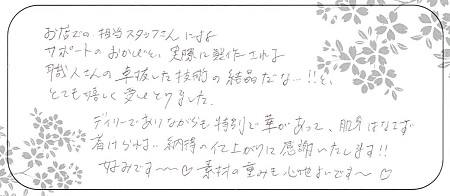 お店での、担当スタッフさんによる
サポートのおかげと、実際に製作される
職人さんの卓抜した技術の結晶だな…!!と、
とても嬉しく
デイリーでありながらも特別で華があって、肌身はなさず
着けられる…納得の仕上がりに感謝いたします!!
好みです〜〜♡ 素材の重みも心地よいです〜♡